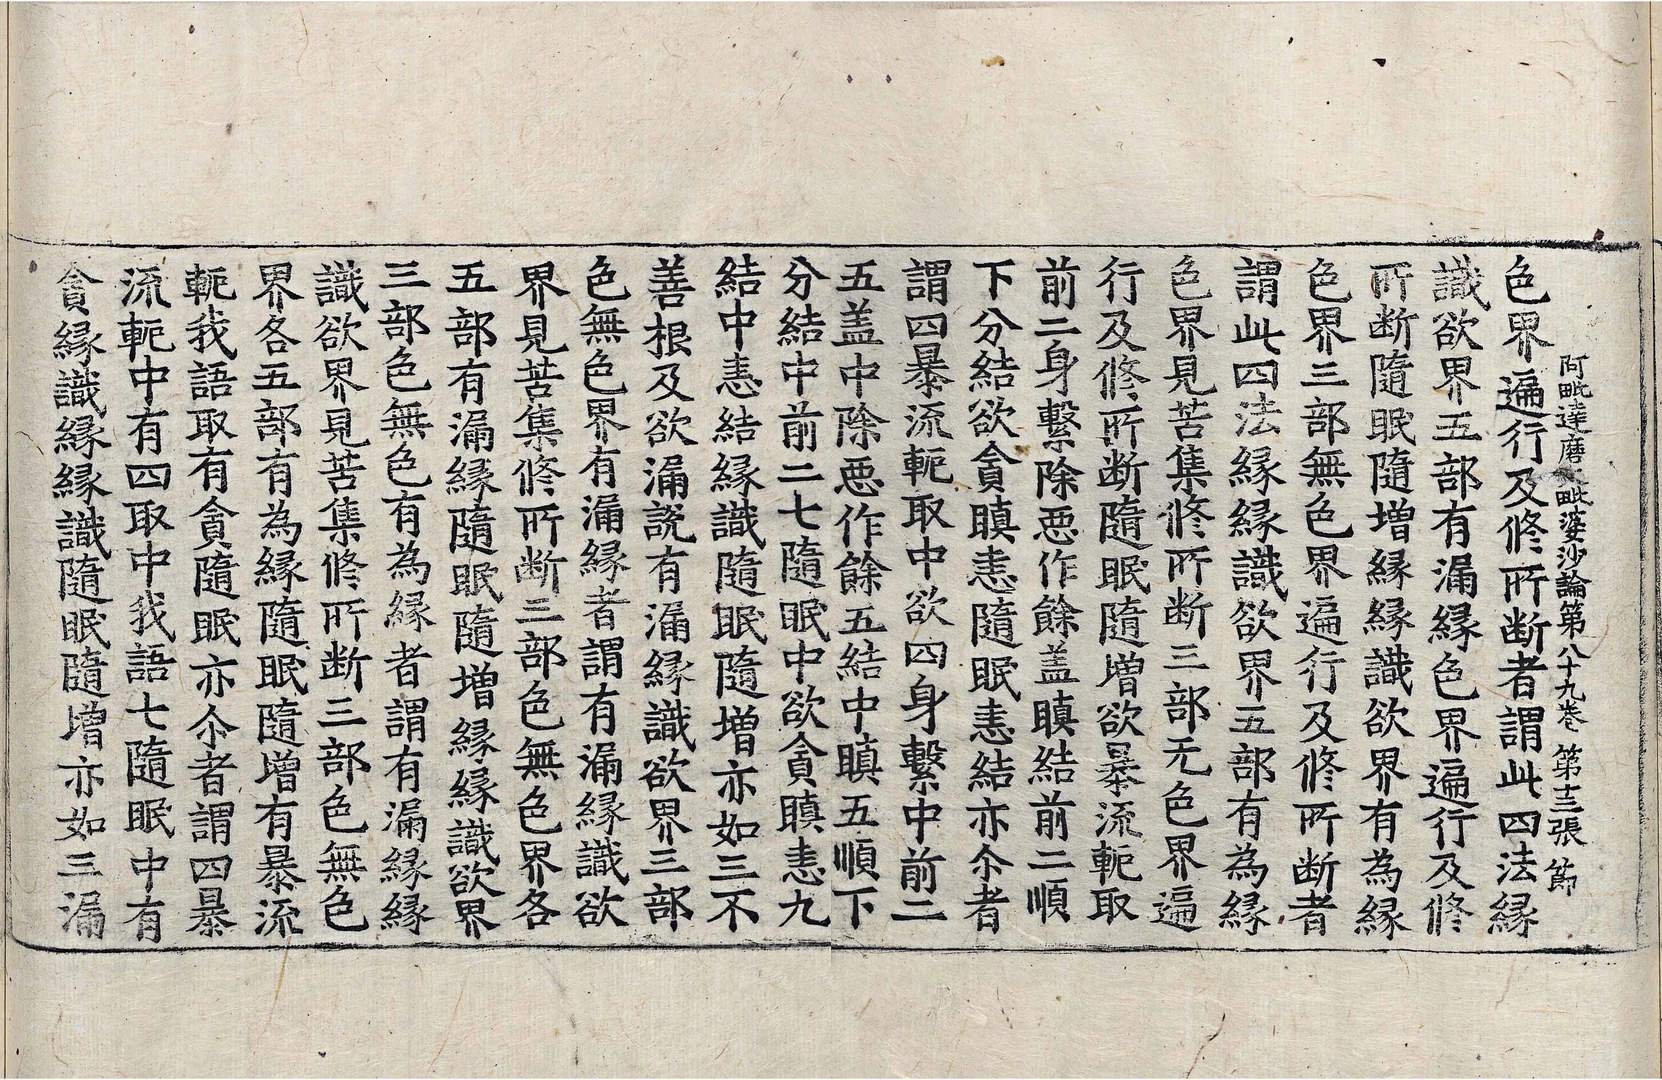 阿毗達磨毗婆沙論第八十九卷 第十三張 節
色界遍行及修所断者謂此四法緣
識欲界五部有漏緣色界遍行及修
所断隨眠隨增緣緣識欲界有為緣
色界三部無色界遍行及修所断者
謂此四法緣緣識欲界五部有為緣
色界見苦集修所断三部无色界遍
行及修所断隨眠隨增欲暴流軛取
前二身繫除惡作餘盖瞋結前二順
下分結欲貪瞋恚隨眠恚結亦尒者
謂四暴流軛取中欲四身繫中前二
五盖中除惡作餘五結中瞋五順下
分結中前二七隨眠中欲貪瞋恚九
結中恚結緣識隨眠隨增亦如三不
善根及欲漏說有漏緣識欲界三部
色無色界有漏緣者謂有漏緣識欲
界見苦集修所断三部色無色界各
五部有漏緣隨眠隨增緣緣識欲界
三部色無色有為緣者謂有漏緣緣
識欲界見苦集修所断三部色無色
界各五部有為緣隨眠隨增有暴流
軛我語取有貪隨眠亦尒者謂四暴
流軛中有四取中我語七隨眠中有
貪緣識緣緣識隨眠隨增亦如三漏